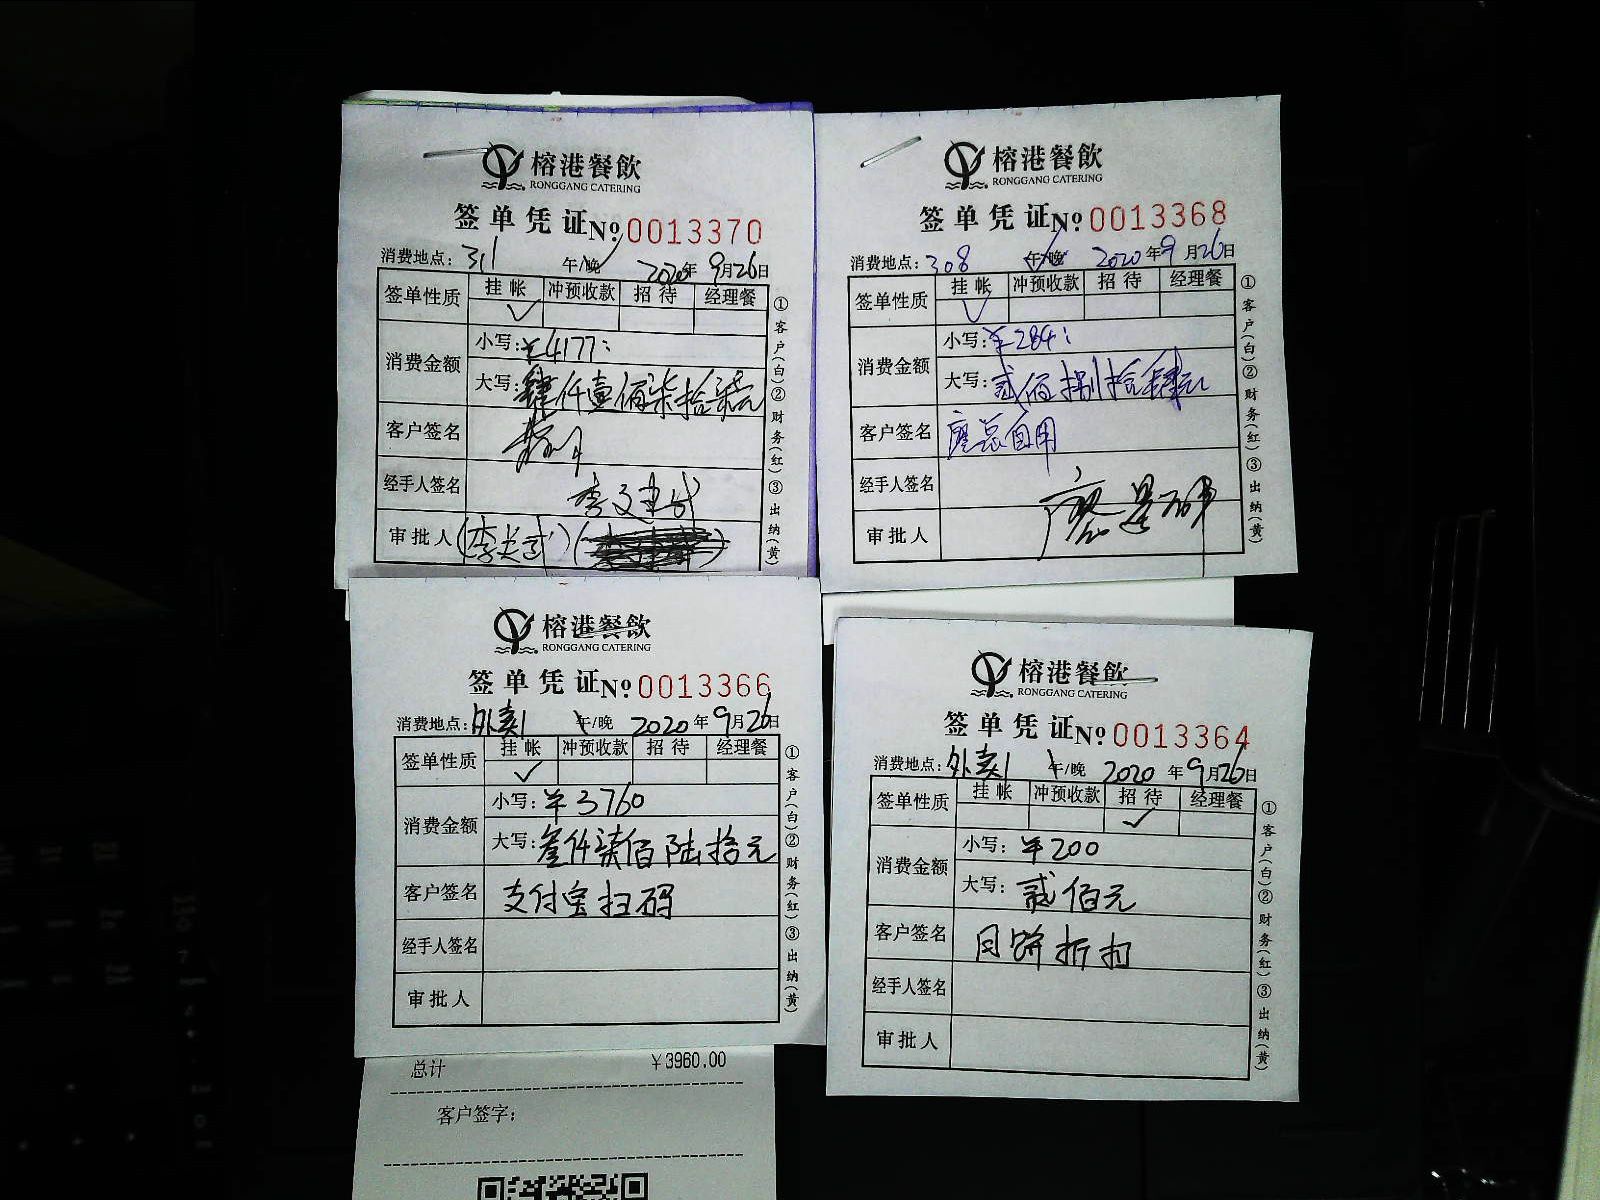 榕港餐飲
RONGGANG CATERING
签单凭证 №0013370
消费地点: 311 午/晚 2020年9月26日
签单性质 挂帐 冲预收款 招待 经理餐
✓
消费金额 小写: ¥4177:
大写: 肆仟壹佰柒拾柒元
客户签名
经手人签名
审批人
①客户(白)②财务(红)③出纳(黄)
榕港餐飲
RONGGANG CATERING
签单凭证 №0013368
消费地点: 308 午/晚 2020年9月26日
签单性质 挂帐 冲预收款 招待 经理餐
✓
消费金额 小写: ¥284:
大写: 贰佰捌拾肆元
客户签名 廖总自用
经手人签名
审批人
①客户(白)②财务(红)③出纳(黄)
榕港餐飲
RONGGANG CATERING
签单凭证 №0013366
消费地点: 外卖1 午/晚 2020年9月26日
签单性质 挂帐 冲预收款 招待 经理餐
✓
消费金额 小写: ¥3760
大写: 叁仟柒佰陆拾元
客户签名 支付宝扫码
经手人签名
审批人
①客户(白)②财务(红)③出纳(黄)
总计 ¥3960.00
客户签字:
榕港餐飲
RONGGANG CATERING
签单凭证 №0013364
消费地点: 外卖1 午/晚 2020年9月26日
签单性质 挂帐 冲预收款 招待 经理餐
✓
消费金额 小写: ¥200
大写: 贰佰元
客户签名 月饼折扣
经手人签名
审批人
①客户(白)②财务(红)③出纳(黄)